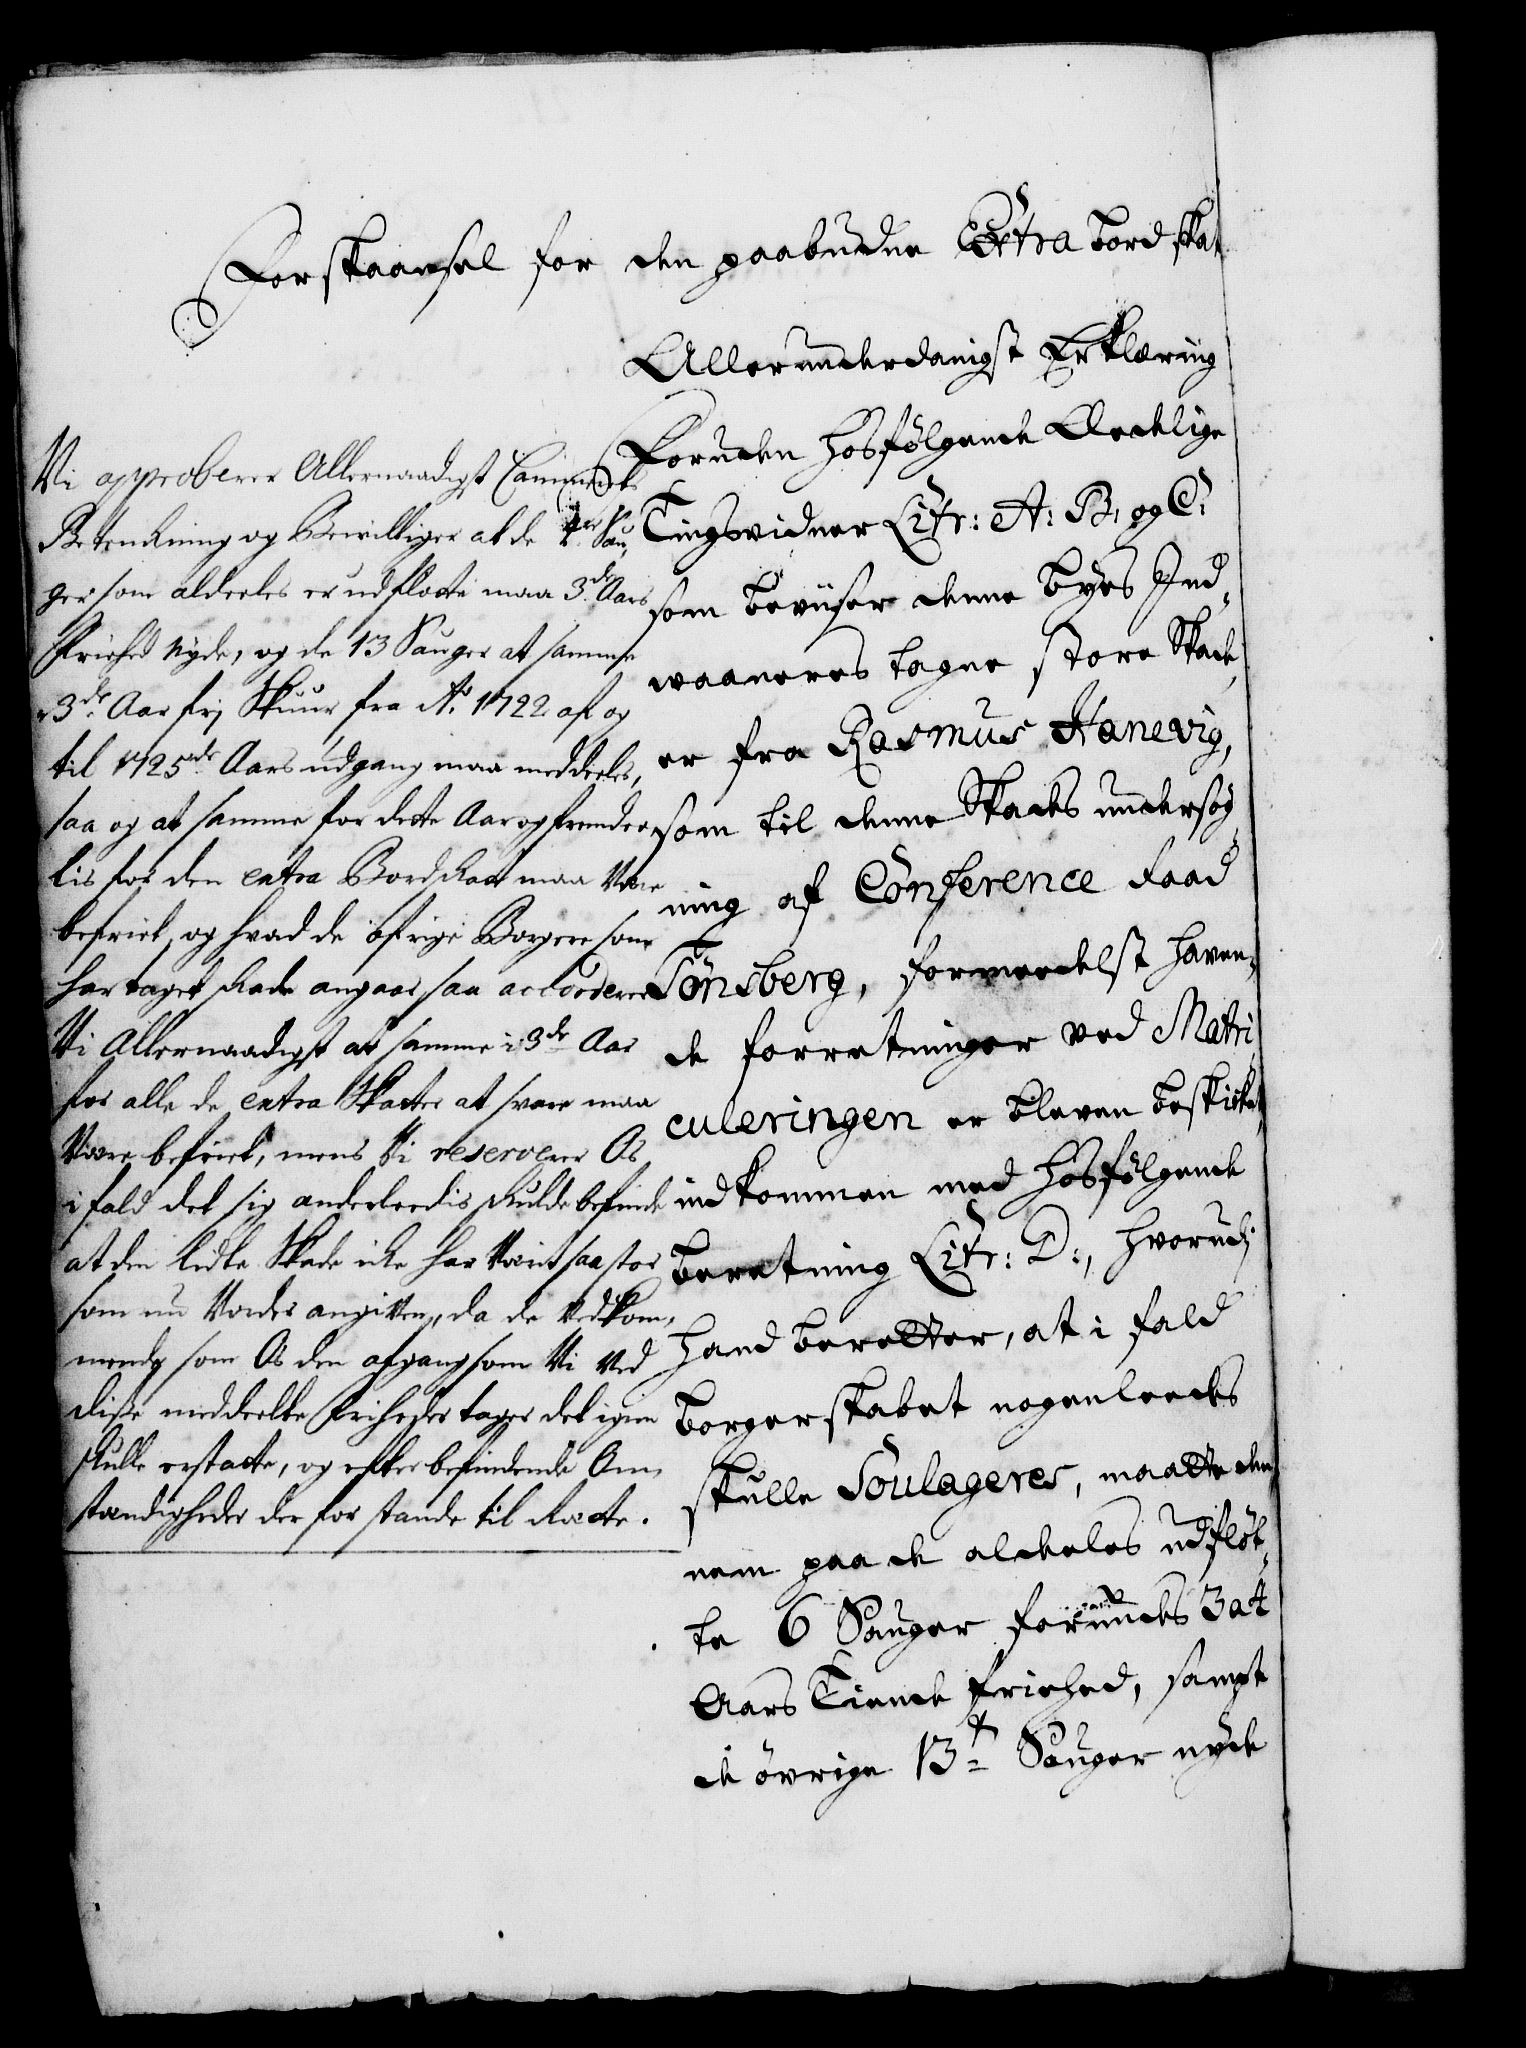 Forskaansel for den paabudne Extra bordskat
Allerunderdanigst Erklæring
Foruden hosfølgende Lovlige
Tingsvidner Litr: A: B, og C:
som beviiser denne byes Ind,
vaaneres tagne store Skade,
er fra Rasmus Hanevig,
som til denne Skades undersøg
ning af Conference Raad
Tønsberg, formeedelst haven,
de forretninger ved Matri
culeringen er bleven beskikket,
indkommen med hosfølgende
beretning Litr: D:, hvorudj
hand beretter, at i fald
borgerskabet nogenleedes
skulle Soulageres, maatte den,
nem paa de aldeles udfløt,
te 6 Sauger forundes 3 a 4
Aars Tiende friehed, sampt
de øvrige 13de Sauger nyde
Vi approberer Allernaadigst Cammerets
Betenkning og Bevilliger at de Sau,
ger som aldeeles er udfløtte maa 3de Aars
Friehed Nyde, og de 13 Sauger at samme
i 3de Aar frj Skuur fra Ao. 1722 af og
til 1725de Aars udgang maa meddeeles,
saa og at samme for dette Aar og fremdee
lis for den extra Bordskat maa Være
befriet, og hvad de øfrige Borgere som
har taget skade angaar saa accorderer
Vi Allernaadigst at samme i 3de Aar
for alle de extra Skatter at svare maa
Være befriet, mens Vi reserverer Os
i fald det sig anderleedis skulde befinde
at den lidte Skade icke har Værit saa stor
som nu Vorder angiven, da de Vedkom,
mende som Os den afgang som Vi Ved
disse meddeelte friheder tager det igien
skulle erstatte, og efter befindende Om,
stændigheder der for stande til Rætte.